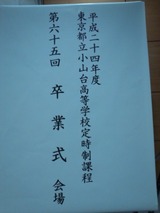 平成二十四年度
東京都立小山台高等学校定時制課程
第六十五回 卒業式 会場